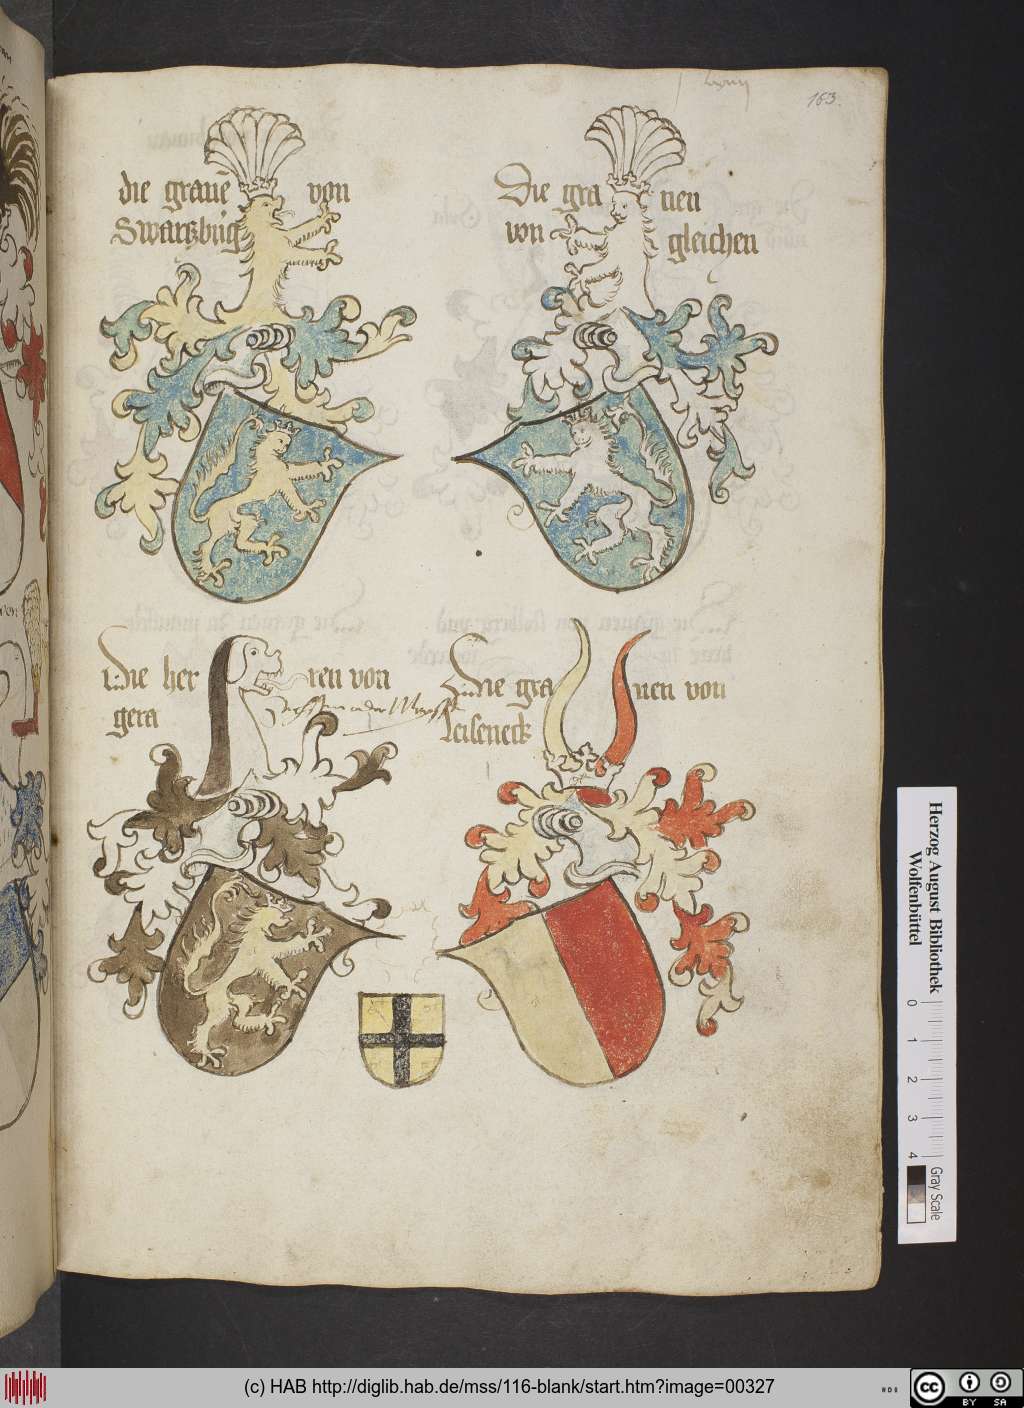 163.
die graue von
Swartzburg
Die gra nen
von gleichen
Die her ren von
gera
Die gra nen von
leiseneck
Herzog August Bibliothek
Wolfenbüttel
0 1 2 3 4
Gray Scale
(c) HAB http://diglib.hab.de/mss/116-blank/start.htm?image=00327
cc BY SA